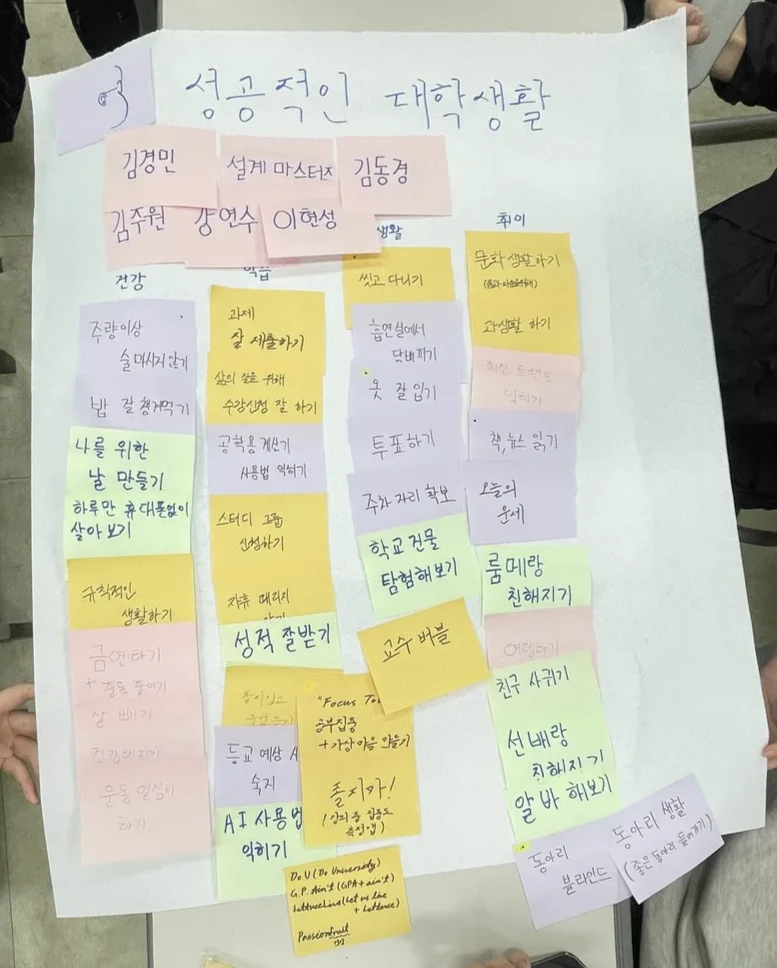 성공적인 대학생활
김경민
설계 마스터즈
김동경
김주원
강연수
이현성
건강
주량이상
술 마시지 않기
밥 잘 챙겨먹기
나를 위한
날 만들기
하루만 휴대폰없이
살아보기
규칙적인
생활하기
금연하기
살 빼기
건강해지기
운동 열심히
하기
학습
과제
잘 제출하기
삶의 질을 위해
수강신청 잘 하기
공학용 계산기
사용법 익히기
스터디 그룹
신청하기
자휴 때리지
성적 잘받기
등교 예상
숙지
AI 사용법
익히기
"Focus
공부집중
졸지마!
DoU (Do University)
G.P. Ain't (GPA + ain't)
LettuceLive (Let us live
+ Lettuce)
Passionfruit
생활
씻고 다니기
흡연실에서
담배 피기
옷 잘 입기
투표하기
주차 자리 확보
학교 건물
탐험해보기
교수 버블
취미
문화생활하기
과생활 하기
최신 트렌드
익히기
책, 뉴스 읽기
오늘의
운세
룸메랑
친해지기
여행가기
친구 사귀기
선배랑
친해지기
알바 해보기
동아리
블라인드
동아리 생활
(좋은 동아리 들어가기)